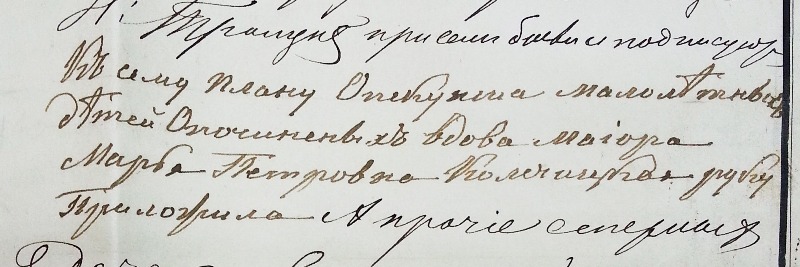 при семъ бывши подписуюсь
Къ сему плану Опекунша малолѣтныхъ
дѣтей Опочиненыхъ вдова Маіора
Марья Петровна Колчицкая руку
Приложила А прочіе